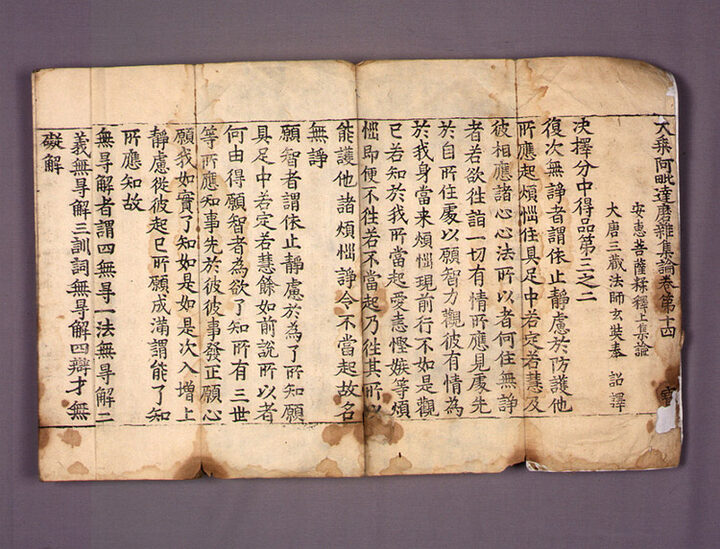 大乘阿毗達磨雜集論卷第十四
安惠菩薩糅釋上集論
大唐三藏法師玄奘奉 詔譯
決擇分中得品第三之二
復次無諍者謂依止靜慮於防護他
所應起煩惱住具足中若定若慧及
彼相應諸心心法所以者何住無諍
者若欲往詣一切有情所應見處先
於自所住處以願智力觀彼有情為
於我身當来煩惱現前行不如是觀
已若知於我所當起愛恚慳嫉等煩
惱即便不往若不當起乃往其所以
能護他諸煩惱諍令不當起故名
無諍
願智者謂依止靜慮於為了所知願
具足中若定若慧餘如前說所以者
何由得願智者為欲了知所有三世
等所應知事先於彼彼事發正願心
願我如實了知如是如是次入增上
靜慮從彼起已所願成滿謂能了知
所應知故
無㝵解者謂四無㝵一法無㝵解二
義無㝵解三訓詞無㝵解四辯才無
礙解